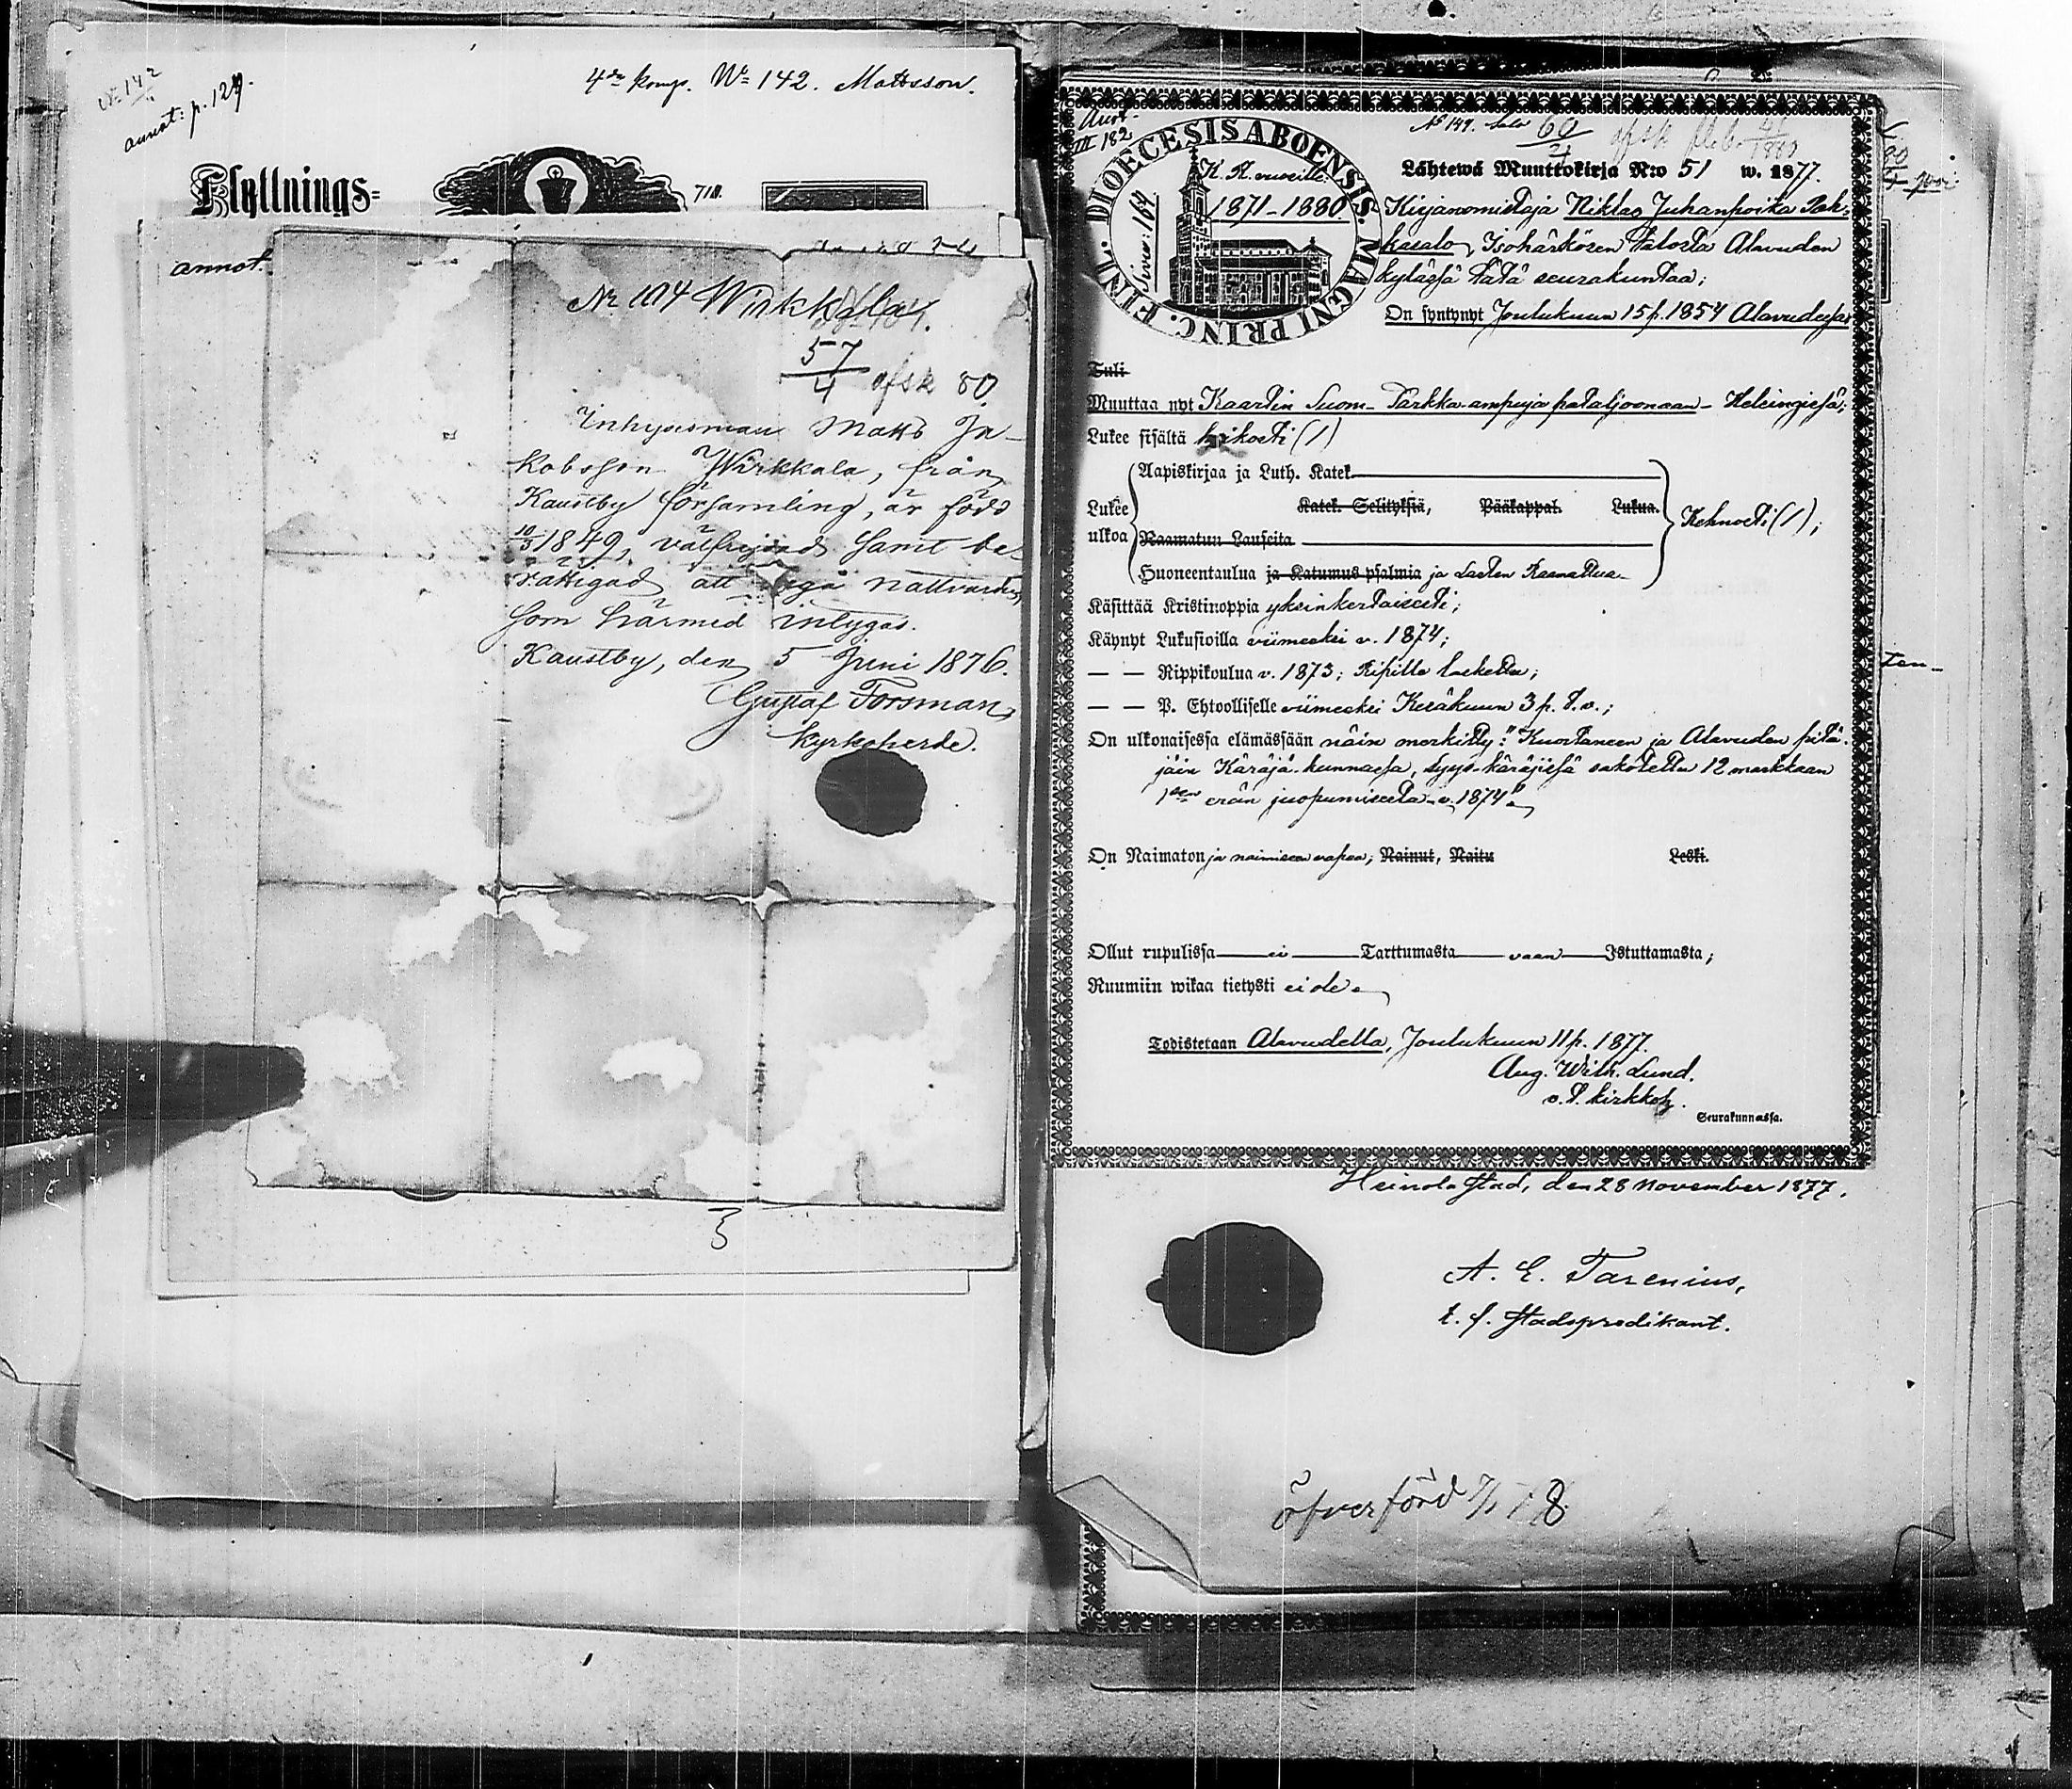 No 142
annot: p. 129.
4de komp. No 142. Mattsson.
Flyttnings-
718.
annot.
Nr 104 Wirkkala.
57/4 afsk 80.
Inhysesman Matts Ja-
kobsson Wirkkala, från
Kaustby församling, är född
10/3 1849, välfrejdad samt be-
rättigad att begå nattvarden
som härmed intygas.
Kaustby, den 5 Juni 1876.
Gustaf Forsman,
Kyrkoherde.
3
Annot.
III 182
DIOECESIS ABOENSIS. MAGNI PRINC. FINL.
K. K. vuosilta:
1871-1880
Sivu. 164
No 149. Salo 60/4 afsk
Lähtewä Muuttokirja N:o 51 w. 1877.
Kirjanomistaja Niklas Juhanpoika
kasalo, Isohärkösen talosta Alavuden
kylässä tätä seurakuntaa;
On syntynyt Joulukuun 15 p. 1854 Alavudessa
Tuli
Muuttaa nyt Kaartin Suom- Tarkka-ampuja pataljoonaan- Helsingissä;
Lukee sisältä heikosti (1)
Lukee ulkoa
Aapiskirjaa ja Luth. Katek.
Katek. Selityksiä, Pääkappal. Lukua.
Raamatun Lauseita
Huoneentaulua ja Katumus psalmia ja Lasten Raamattua
Kehnosti (1);
Käsittää Kristinoppia yksinkertaisesti;
Käynyt Lukusioilla viimeksi v. 1874;
— — Rippikoulua v. 1873; Ripille laskettu;
— — P. Ehtoolliselle viimeksi Kesäkuun 3 p. t.v.;
On ulkonaisessa elämässään näin merkitty: "Kuortaneen ja Alavuden pitä-
jäin Käräjä-kunnassa, syys-käräjissä sakotettu 12 markkaan
1sen erän juopumisesta v. 1874"
On Naimaton ja naimiseen vapaa; Nainut, Naitu Leski.
Ollut rupulissa ei Tarttumasta vaan Istuttamasta;
Ruumiin wikaa tietysti ei ole.
Todistetaan Alavudella, Joulukuun 11 p. 1877.
Aug. Wilh. Lund.
v.t. kirkkoh.
Seurakunnassa.
Heinola stad, den 28 November 1877.
A. E. Tarenius,
t. f. stadspredikant.
öfverförd 7/1 78